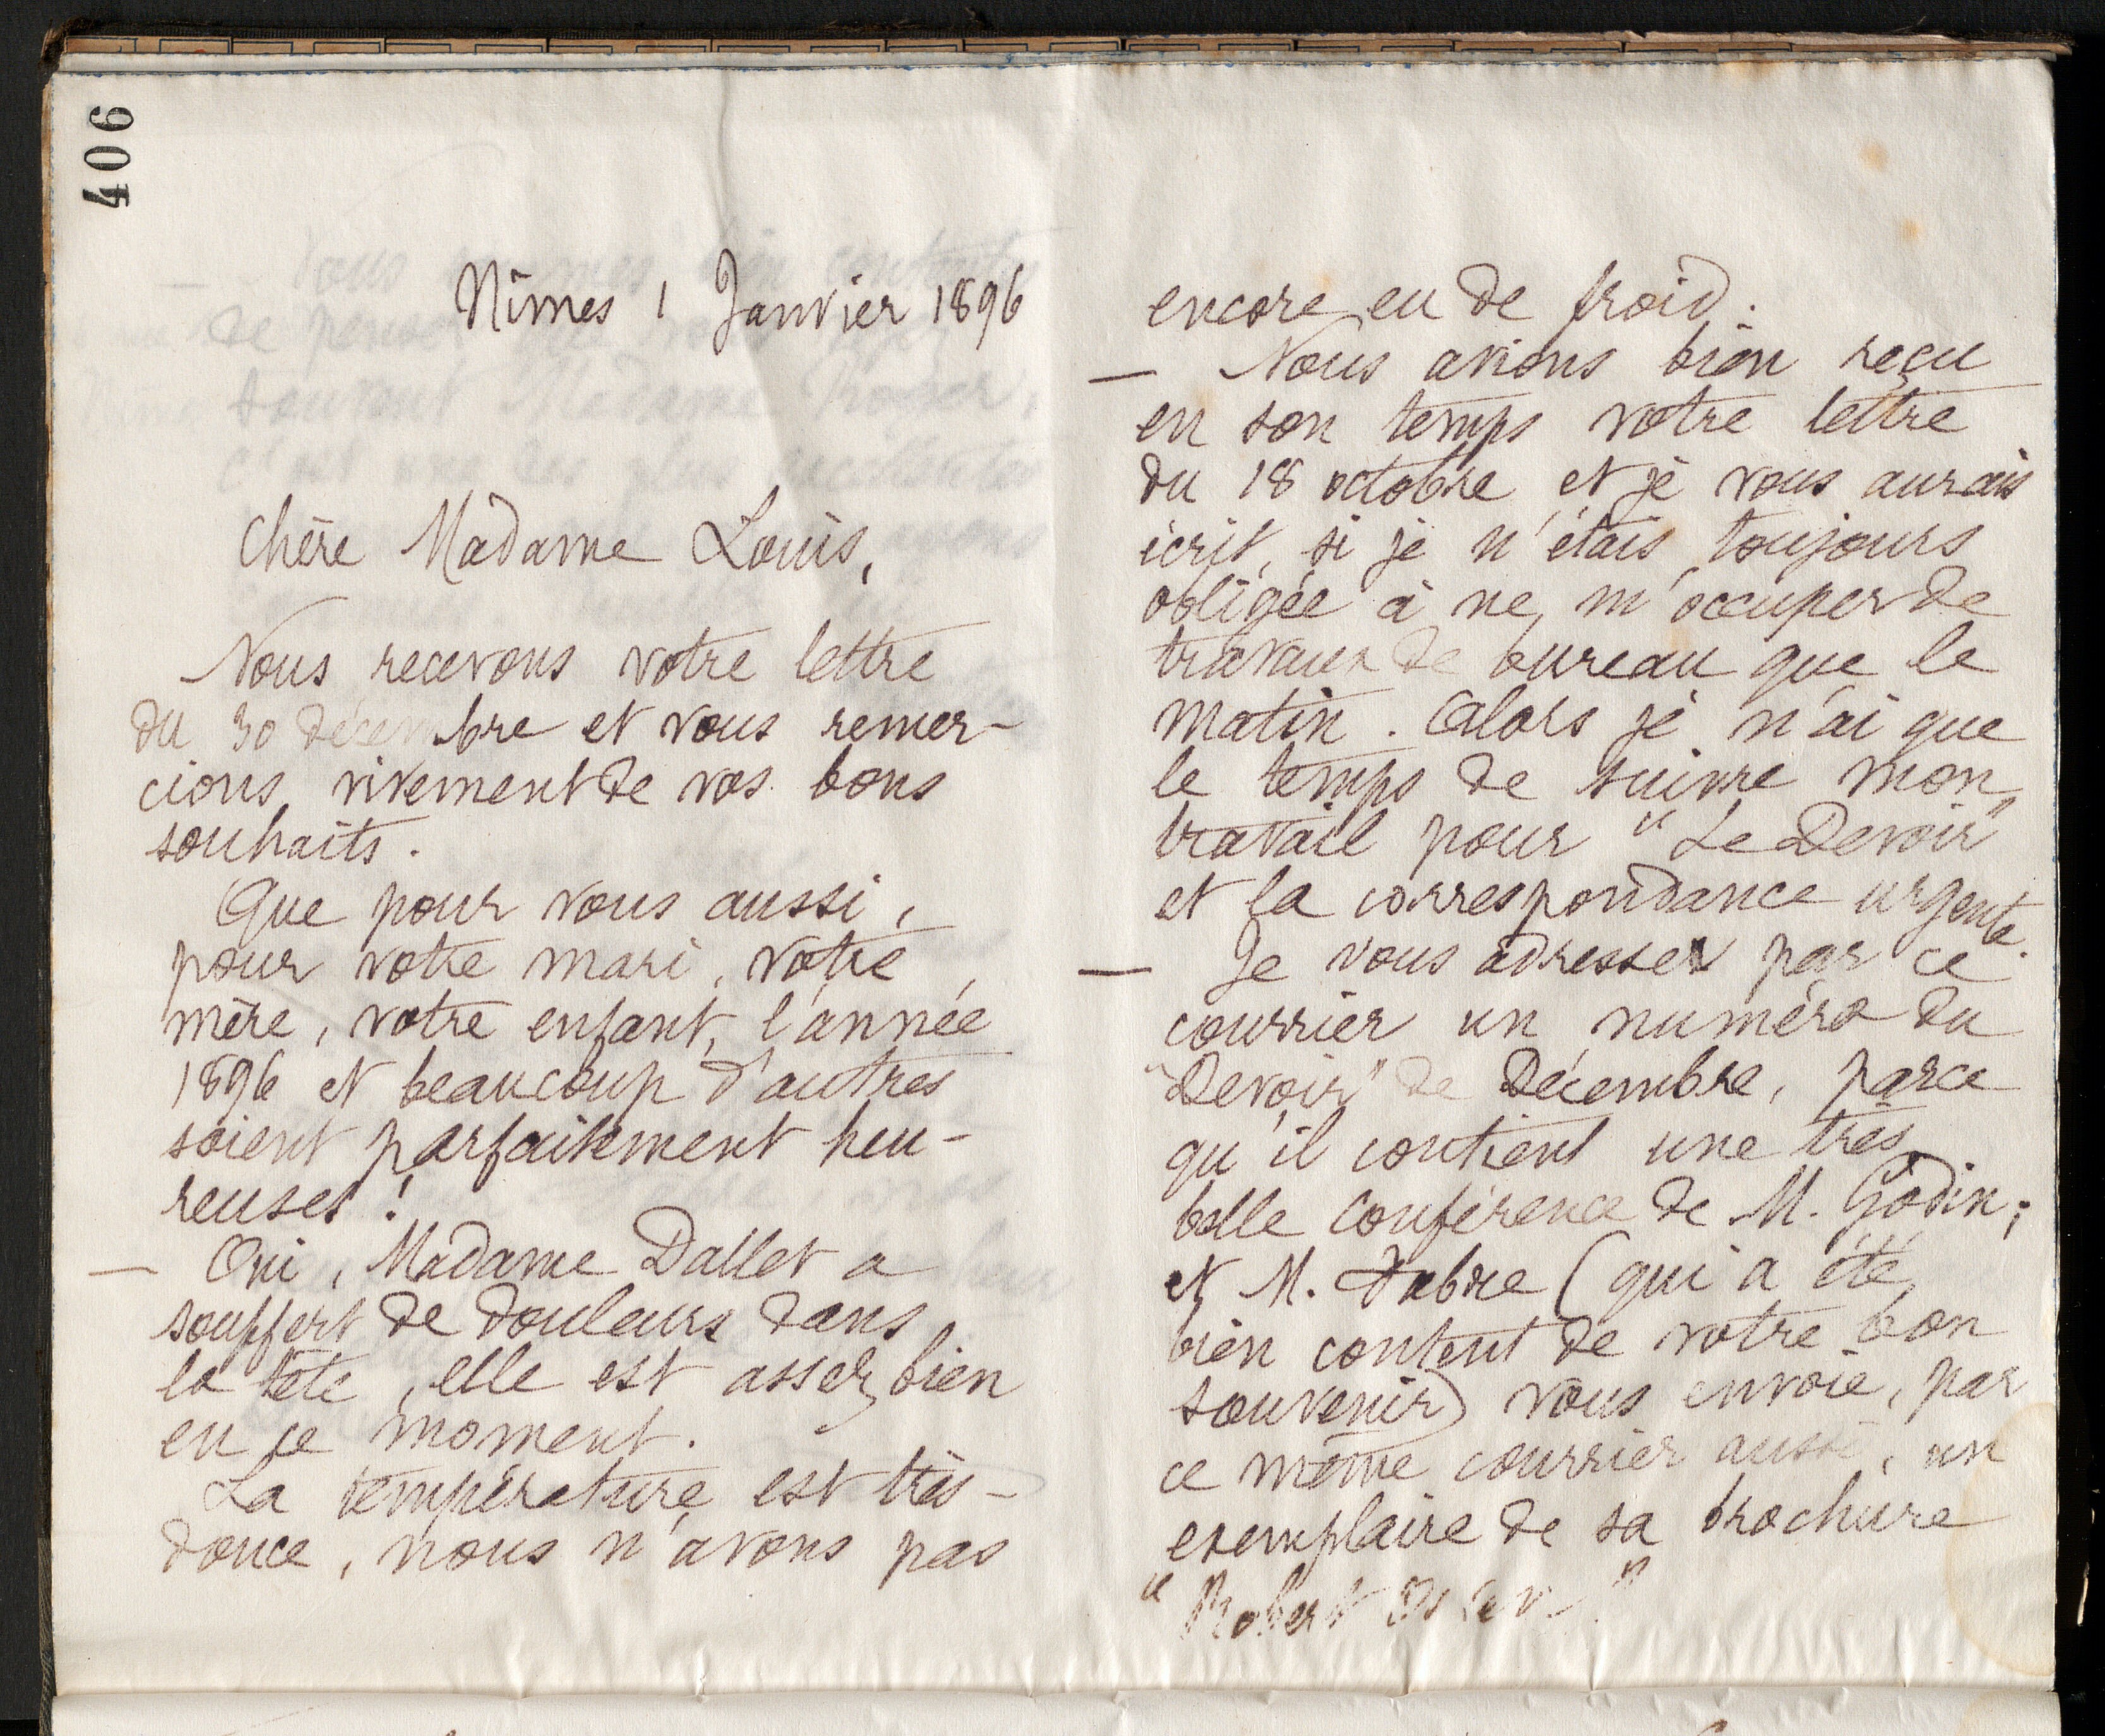 406
Nîmes 1 Janvier 1896
Chère Madame Louis,
Nous recevons votre lettre
du 30 décembre et vous remer-
cions vivement de vos bons
souhaits.
Que pour vous aussi,
pour votre mari, votre
mère, votre enfant, l'année
1896 et beaucoup d'autres
soient parfaitement heu-
reuses !
— Oui, Madame Dallet a
souffert de douleurs dans
la tête, elle est assez bien
en ce moment.
La température est très-
douce, nous n'avons pas
encore eu de froid.
— Nous avions bien reçu
en son temps votre lettre
du 18 octobre et je vous aurais
écrit, si je n'étais toujours
obligée à ne m'occuper de
travaux de bureau que le
matin. Alors je n'ai que
le temps de suivre mon
travail pour "Le Devoir"
et la correspondance urgente.
— Je vous adresse par ce
courrier un numéro du
"Devoir" de Décembre, parce
qu'il contient une très
belle conférence de M. Godin ;
et M. Fabre (qui a été
bien content de votre bon
souvenir) vous envoie, par
ce même courrier aussi, un
exemplaire de sa brochure
"Robert Owen."